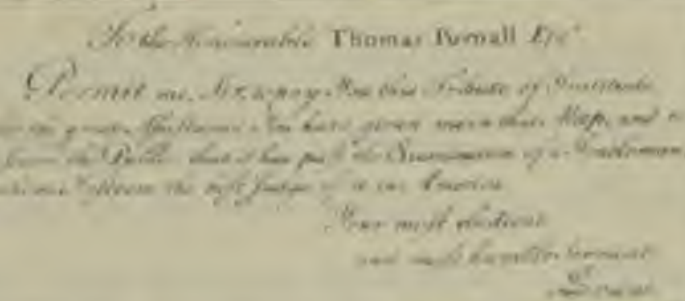 To the Honourable Thomas Pownall Esqr.
Permit me, Sir, to pay You this Tribute of Gratitude
for the great Assistance You have given me in this Map, and to
assure the Public, that it has past the Examination of a Gentleman
whom I esteem the best Judge of it in America
Your most obedient
and most humble Servant